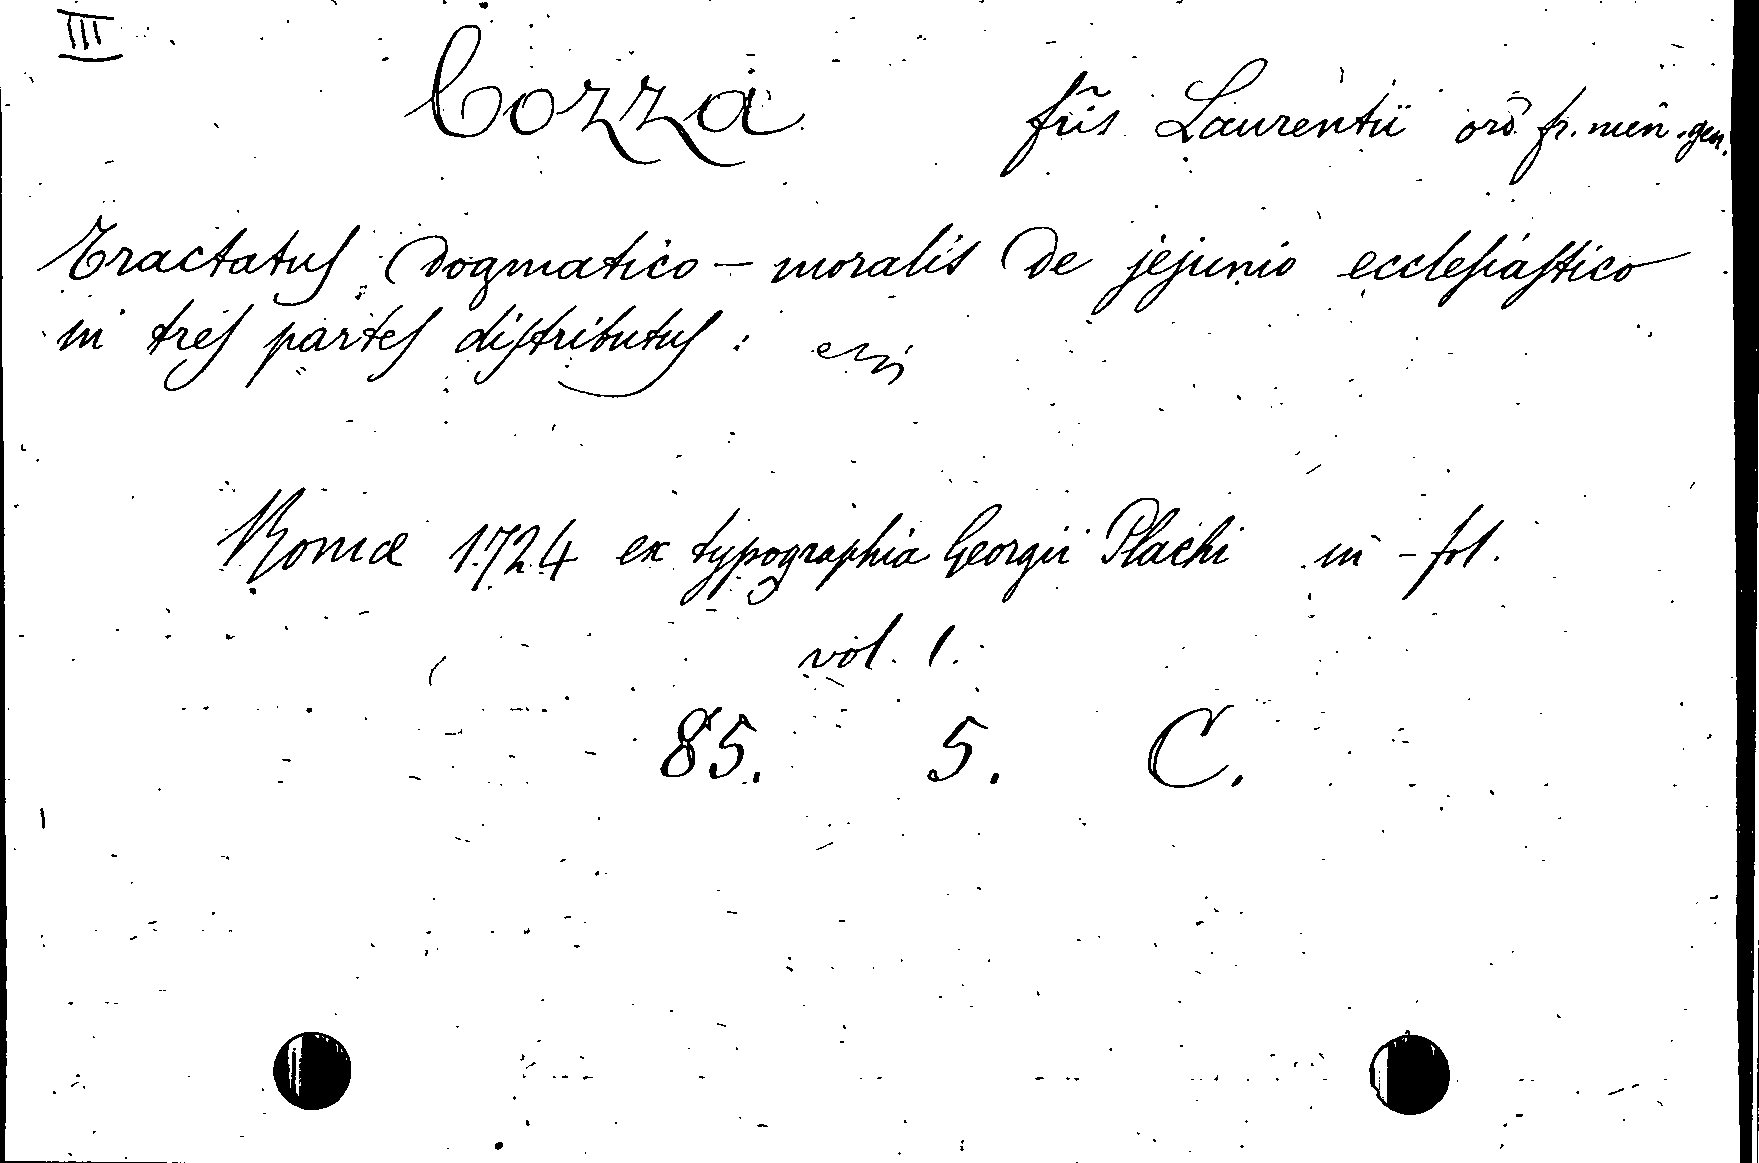 III
Cozza fr̃is Laurentii ord̃ fr. min. gen.
Tractatuſ Dogmatico - moralis De jejunio eccleſiaſtico
in treſ parteſ diſtributuſ :
Romæ 1724 ex typographia Georgii Plachi in - fol.
vol. 1.
85. 5. C.